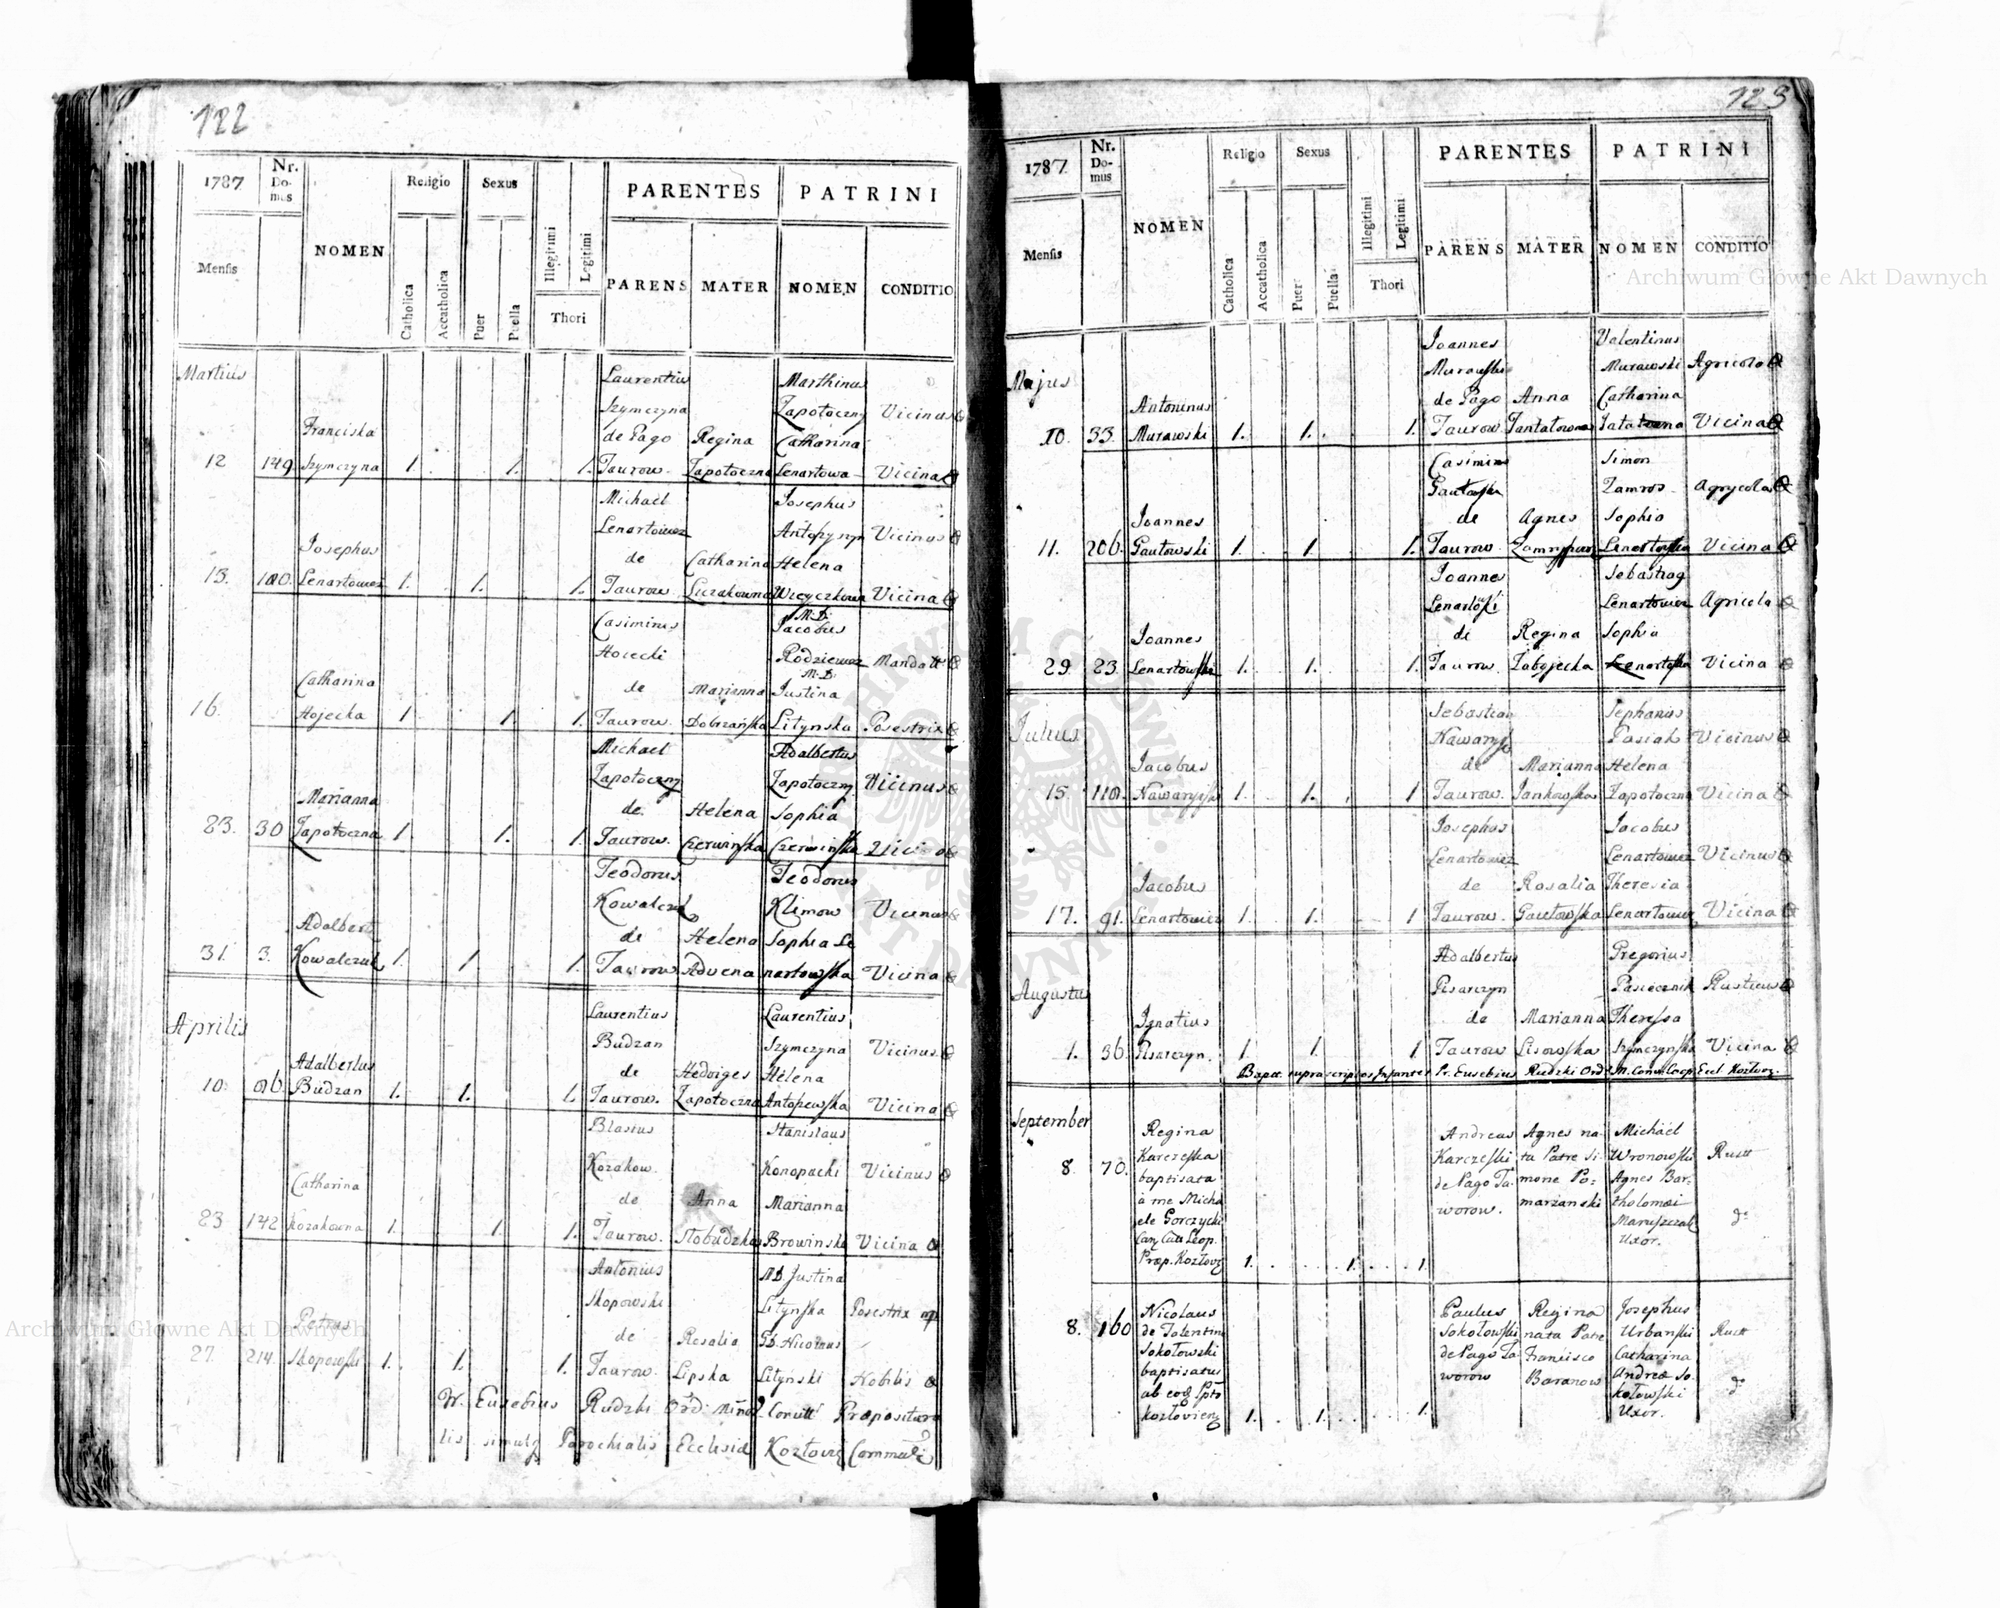 122
1787 Nr. Domus NOMEN Religio Sexus PARENTES PATRINI
Mensis Catholica Accatholica Puer Puella Illegitimi Legitimi Thori PARENS MATER NOMEN CONDITIO
Martius Laurentius Marthinus
Szymczyna Zapotoczny Vicinus
Franciska de Pago Regina Catharina
12 149. Szymczyna 1. 1. 1. Taurow. Zapotoczna Lenartowa Vicina
Michael Josephus
Lenartowicz Vicinus
Josephus de Catharina Helena
13. 180. Lenartowicz 1. 1. 1. Taurow Vicina
Casimirus M.D. Jacobus
Hojecki Rodziewicz Mandatt
Catharina de Marianna M.D. Justina
16. Hojecka 1. 1. 1. Taurow. Dobrzańska Litynska Posestrix
Michael Adalbertus
Zapotoczny Zapotoczny Vicinus
Marianna de Helena Sophia
23. 30 Zapotoczna 1. 1. 1. Taurow. Czerwińska Czerwińska
Teodorus Teodorus
Kowalczuk Klimow Vicinus
Adalbert de Helena Sophia Le
31. 3. Kowalczuk 1. 1. 1. Taurow Advena nartowska Vicina
Aprilis Laurentius Laurentius
Budzan Szymczyna Vicinus
Adalbertus de Hedviges Helena
10. 86. Budzan 1. 1. 1. Taurow. Zapotoczna Vicina
Blasius Stanislaus
Kozakow. Konopacki Vicinus
Catharina de Anna Marianna
23 142 Kozakowna 1. 1. 1. Taurow. Słobudzka Browinska Vicina
Antonius M.D. Justina
Skopowski Litynska Posestrix
Petrus de Rosalia Nicolaus
27. 214. Skopowski 1. 1. 1. Taurow. Lipska Litynski Nobilis
Eusebius Rudzki Ord: Conutt Propositura
lis simulq Parochialis Ecclesia
123
1787. Nr. Domus NOMEN Religio Sexus PARENTES PATRINI
Mensis Catholica Accatholica Puer Puella Illegitimi Legitimi Thori PARENS MATER NOMEN CONDITIO
Joannes Valentinus
Majus Murawski Murawski Agricola
Antoninus de Pago Anna Catharina
10. 33. Murawski 1. 1. 1. Taurow. Vicina
Casimirus Simon
Gautowski Zamroz Agrycola
Joannes de Agnes Sophia
11. 206. Gautowski 1. 1. 1. Taurow. Lenartowska Vicina
Joannes
Lenartowski Lenartowicz Agricola
Joannes de Regina Sophia
29. 23. Lenartowski 1. 1. 1. Taurow. Zabojecka Lenartoska Vicina
Julius Sebastian Stephanus
Pasiak Vicinus
Jacobus de Marianna Helena
15 118. 1. 1. 1 Taurow. Jankowska Zapotoczna Vicina
Josephus Jacobus
Lenartowicz Lenartowicz Vicinus
Jacobus de Rosalia Theresia
17. 91. Lenartowicz 1. 1. 1 Taurow. Gautowska Lenartowicz Vicina
Adalbertus Gregorius
Augustus Pisarczyn Pasiecznik Rusticus
Ignatius de Marianna Theressa
1. 36. Pisarczyn. 1. 1. 1 Taurow Lisowska Szymczynska Vicina
Bapt. suprascriptos Infantes Pr. Eusebius Rudzki Ord M. Conv. Coop Eccl Kozłow.
September Regina Andreas Agnes na- Michael
8. 70. Karczeska Karczeski ta Patre Si- Wronowski Rustt
baptisata de Pago Ta- mone Po- Agnes Bar-
a me Micha worow. marzanski tholomæi
ele Gorczycki Maruszczak do
Uxor.
Præp. Kozłov 1. 1. 1.
8. 160 Nicolaus Paulus Regina Josephus
de Tolentin Sokołowski nata Patre Urbanski Rustt
Sokołowski de Pago Ta- Francisco Catharina
baptisatus worow Baranow Andreæ So-
ab eoq kołowski do
kozłovieng 1. 1. 1. Uxor.
Archiwum Główne Akt Dawnych
Archiwum Główne Akt Dawnych